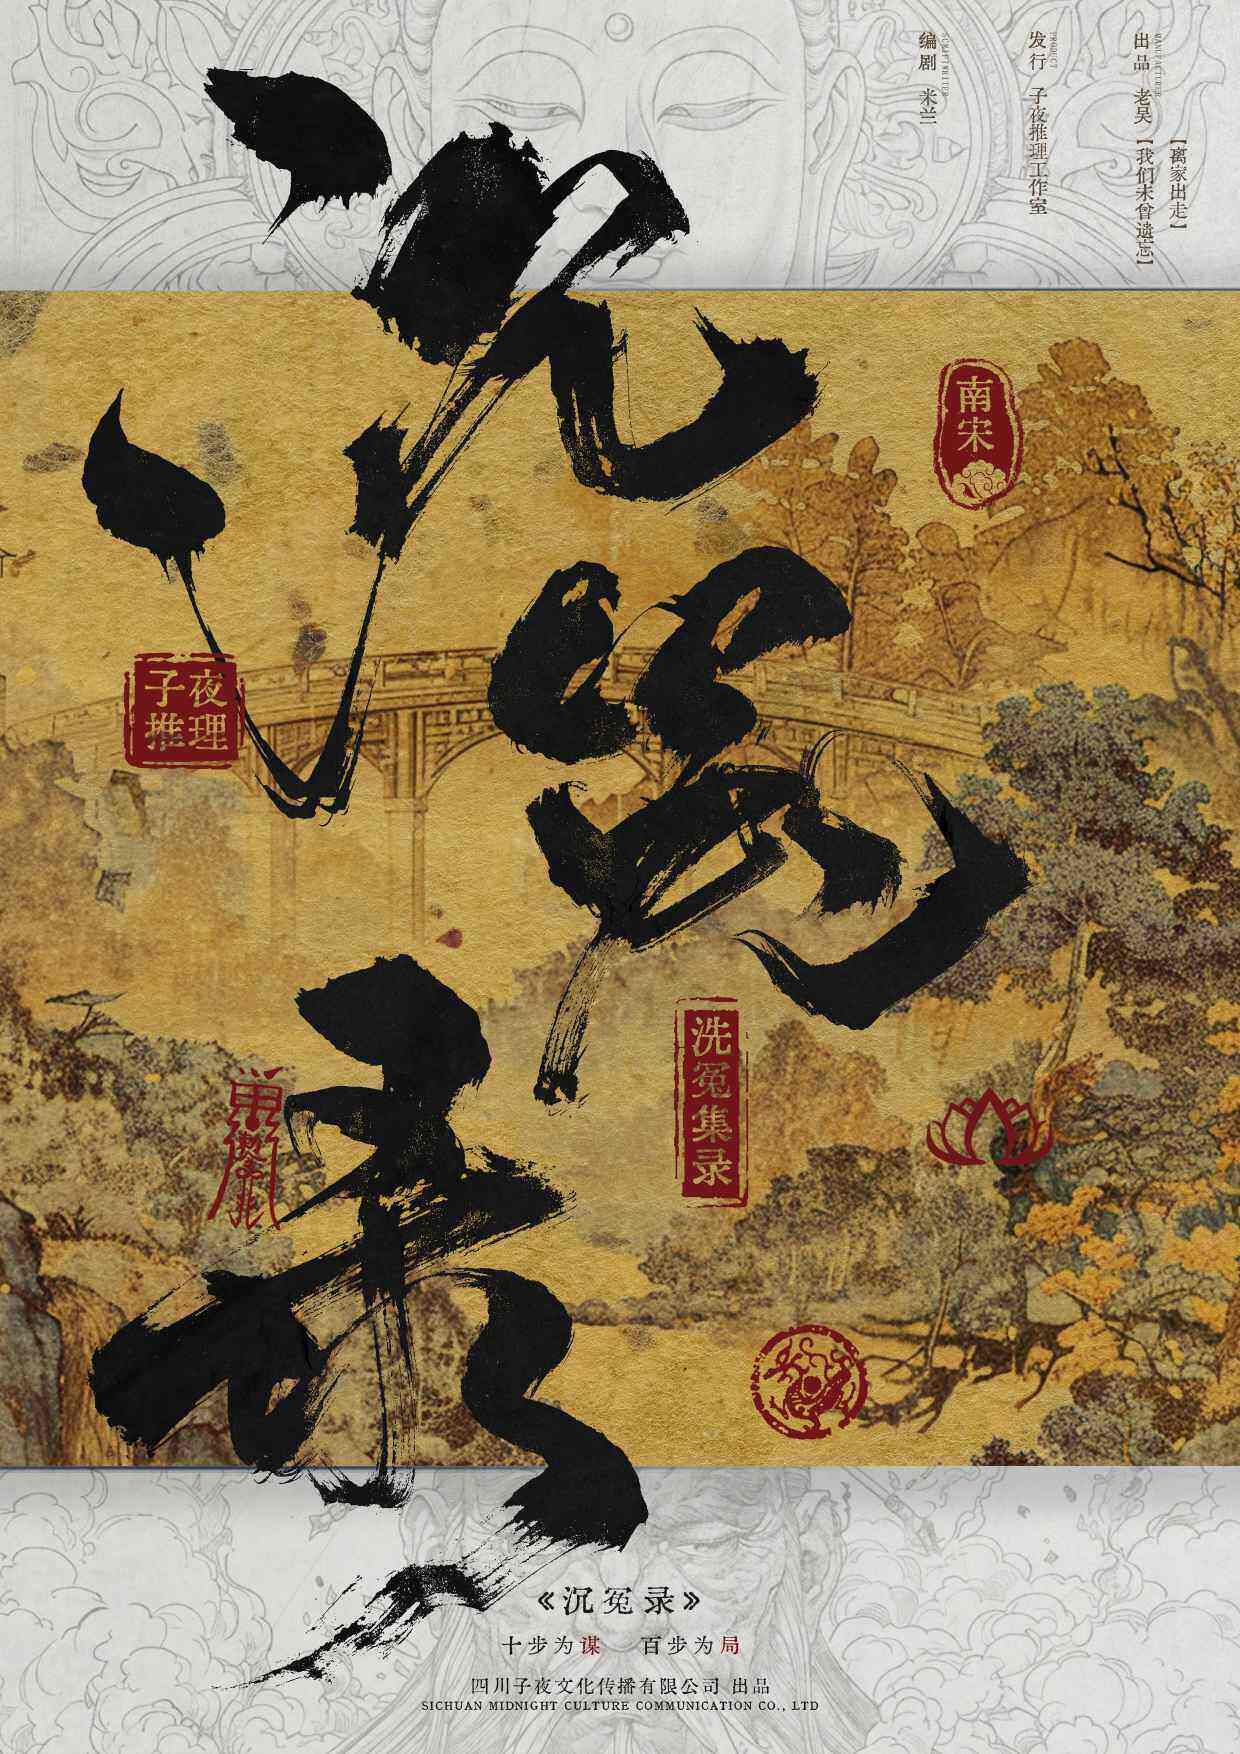 出品 老吴【我们未曾遗忘】
MANUFACTURER
【离家出走】
发行 子夜推理工作室
PRODUCT
编剧 米兰
SCRIPTWRITER
沉冤录
南宋
子夜
推理
洗冤集录
《沉冤录》
十步为谋 百步为局
四川子夜文化传播有限公司 出品
SICHUAN MIDNIGHT CULTURE COMMUNICATION CO., LTD